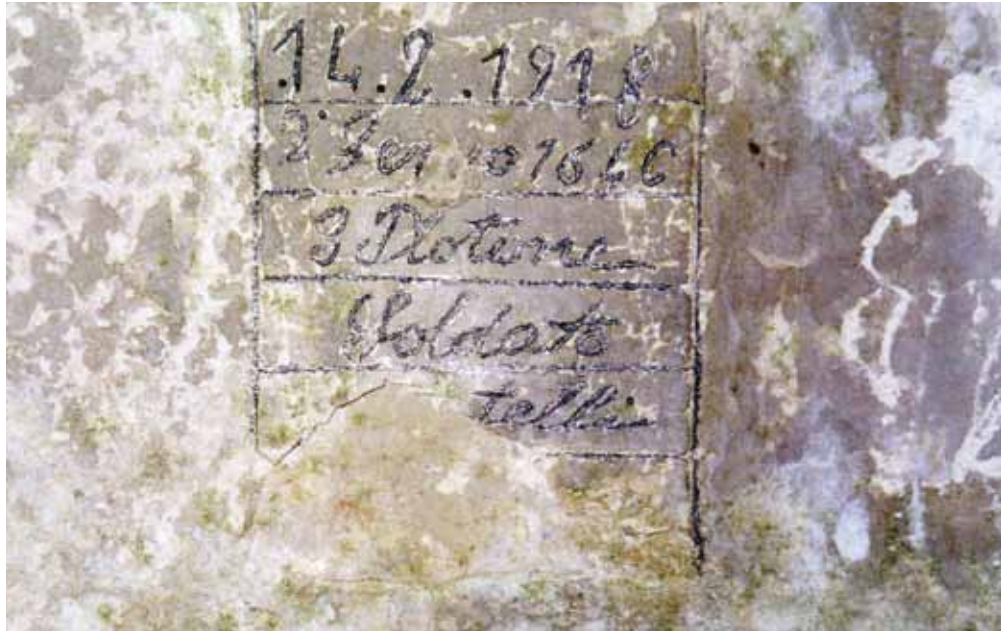 14.2.1918
2° 1646
3 Plotone
Soldato
telli